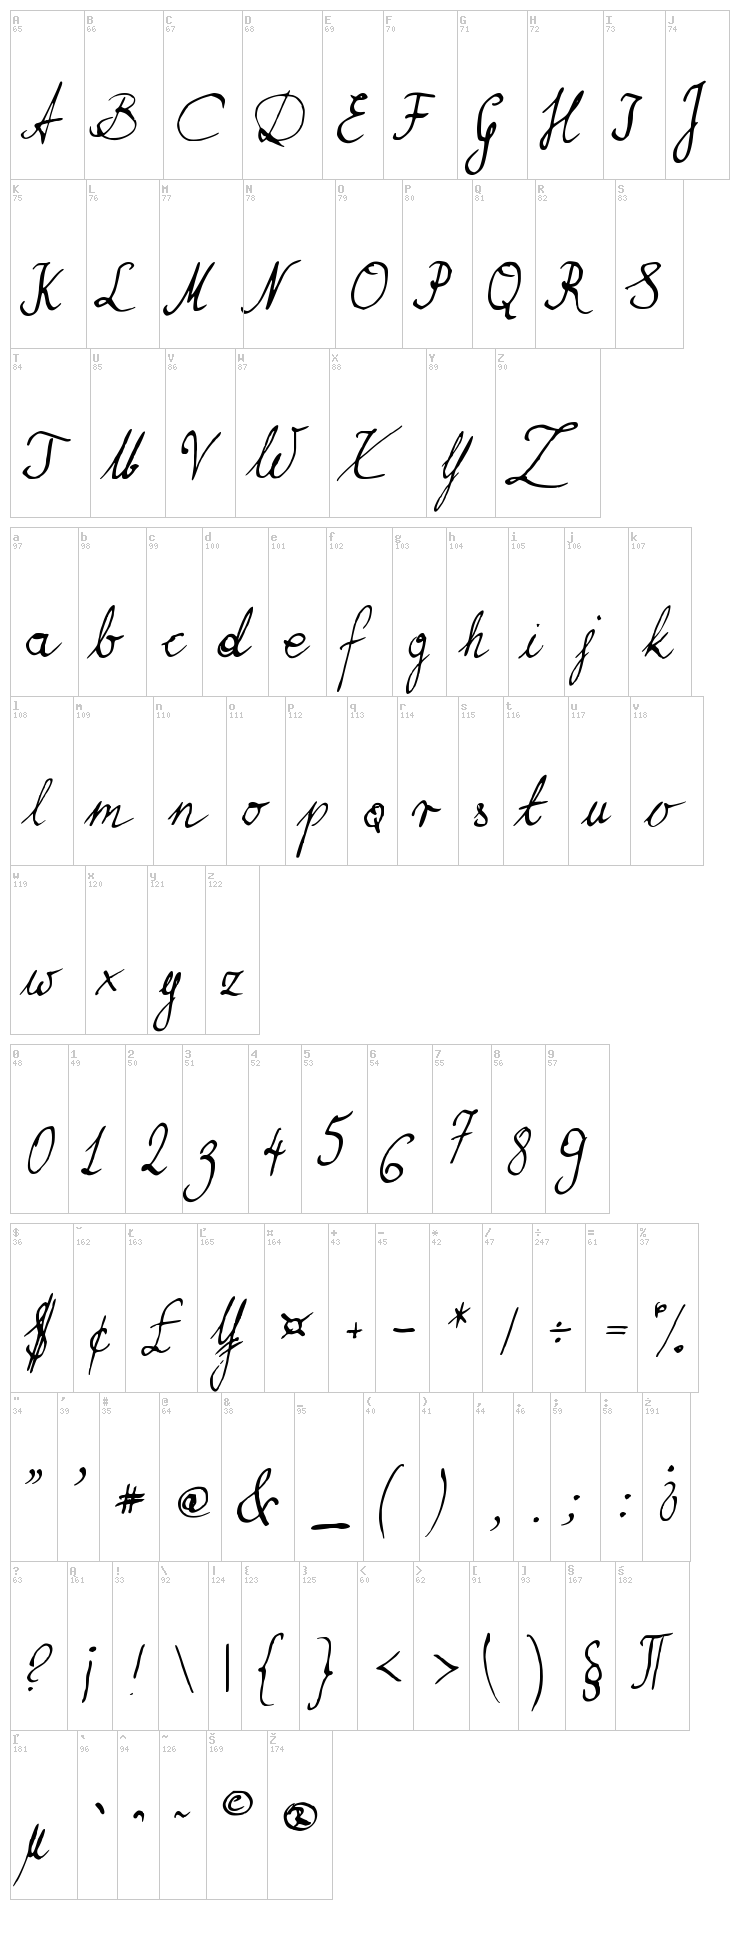 A B C D E F G H I J
65 66 67 68 69 70 71 72 73 74
A B C D E F G H I J
K L M N O P Q R S
75 76 77 78 79 80 81 82 83
K L M N O P Q R S
T U V W X Y Z
84 85 86 87 88 89 90
T U V W X Y Z
a b c d e f g h i j k
97 98 99 100 101 102 103 104 105 106 107
a b c d e f g h i j k
l m n o p q r s t u v
108 109 110 111 112 113 114 115 116 117 118
l m n o p q r s t u v
w x y z
119 120 121 122
w x y z
0 1 2 3 4 5 6 7 8 9
48 49 50 51 52 53 54 55 56 57
0 1 2 3 4 5 6 7 8 9
$ ˘ Ł Ľ ¤ + - * / ÷ = %
36 162 163 165 164 43 45 42 47 247 61 37
$ ¢ £ ¥ ¤ + - * / ÷ = %
" ' # @ & _ ( ) , . ; : ż
34 39 35 64 38 95 40 41 44 46 59 58 191
" ' # @ & _ ( ) , . ; : ¿
? Ą ! \ | { } < > [ ] § ś
63 161 33 92 124 123 125 60 62 91 93 167 182
? ¡ ! \ | { } < > ( ) § ¶
ľ ` ^ ~ Š Ž
181 96 94 126 169 174
µ ` ^ ~ © ®